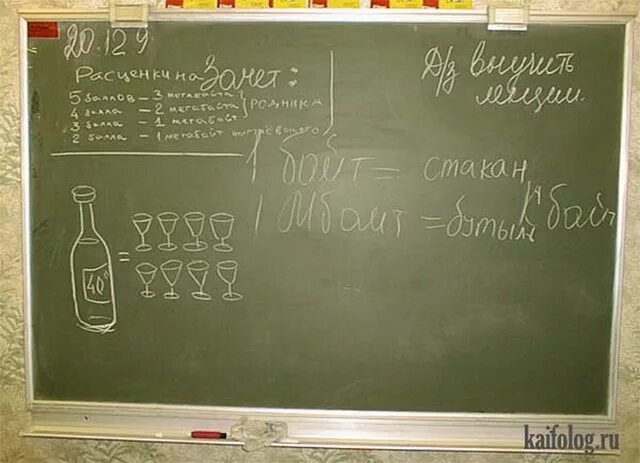 20.12 9
Расценки на Зачет:
5 баллов – 3 мегабайта
4 балла – 2 мегабайта } РОДНИКА
3 балла – 1 мегабайт
2 балла – 1 мегабайт
Д/з выучить
лекции.
1 байт = стакан
1 Мбайт = бутыль
К байт
40°
=
kaifolog.ru